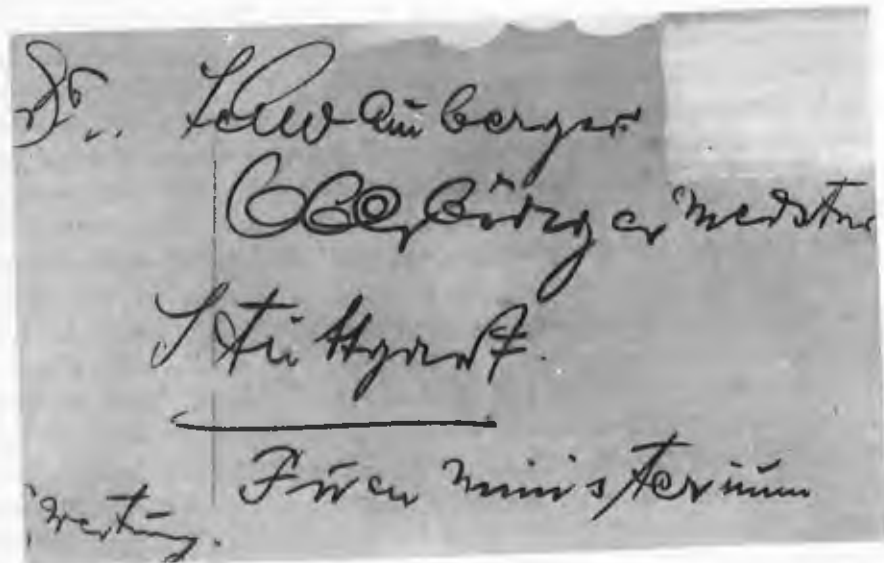 Dr. Schwamberger
Oberbürgermeister
Stuttgart.
ministerium